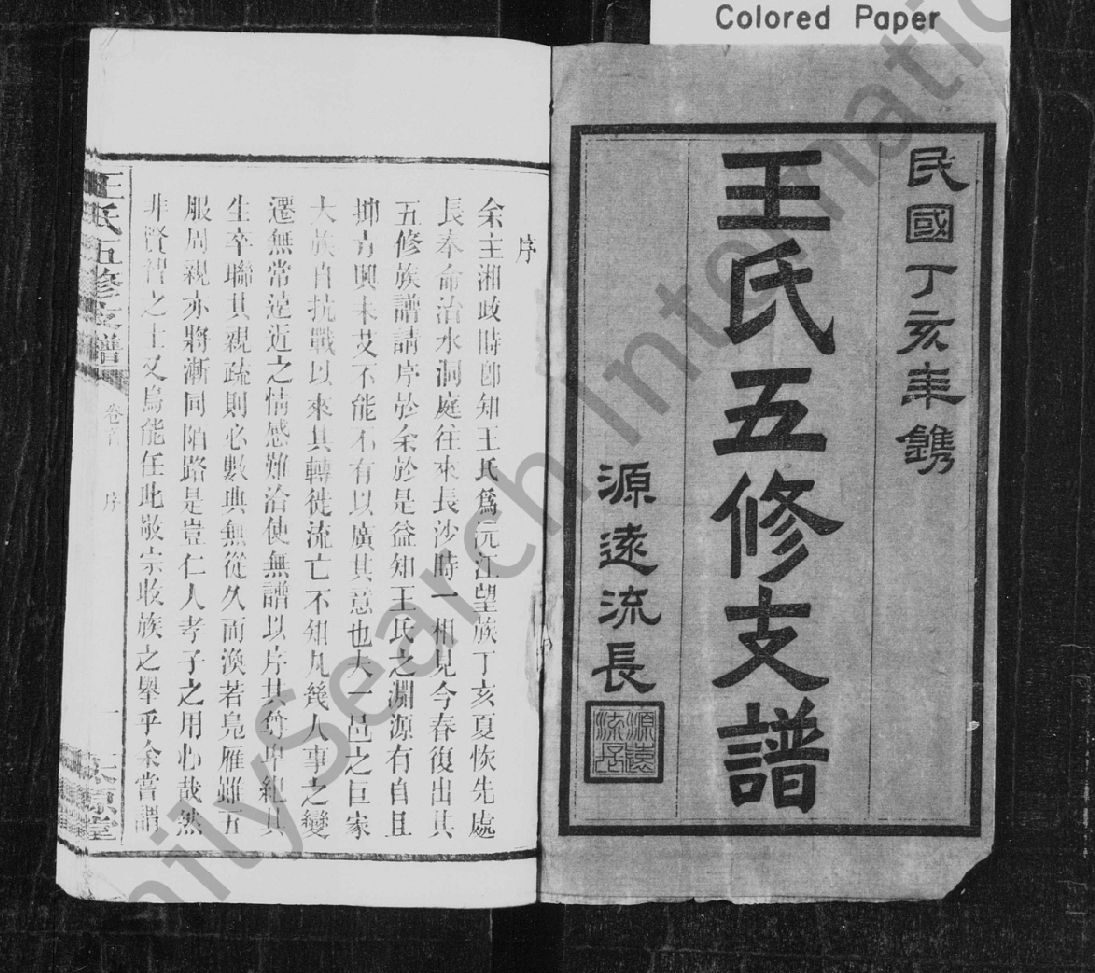 Colored Paper
民國丁亥年鐫
王氏五修支譜
源遠流長
源遠流長
序
余主湘政時卽知王氏爲沅江望族丁亥夏恢先處
長奉命治水洞庭往來長沙時一相見今春復出其
五修族譜請序於余於是益知王氏之淵源有自且
抑方興未艾不能不有以廣其意也夫一邑之巨家
大族自抗戰以來其轉徙流亡不知凡幾人事之變
遷無常遠近之情感難洽使無譜以序其尊卑紀其
生卒聯其親疏則必數典無從久而渙若鳧雁雖五
服周親亦將漸同陌路是豈仁人孝子之用心哉然
非賢智之士又烏能任此敬宗收族之舉乎余嘗謂
王氏五修支譜
卷首
序
一
FamilySearch International